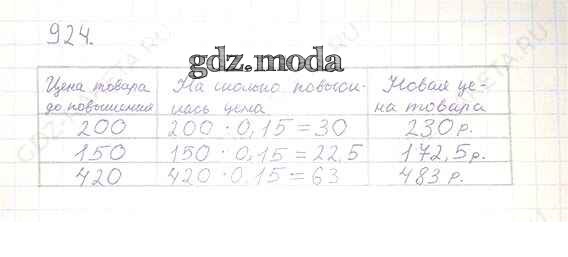 924.
gdz.moda
Цена товара На сколько повыси- Новая це-
до повышения лась цена на товара
200 200 · 0,15 = 30 230 р.
150 150 · 0,15 = 22,5 172,5 р.
420 420 · 0,15 = 63 483 р.